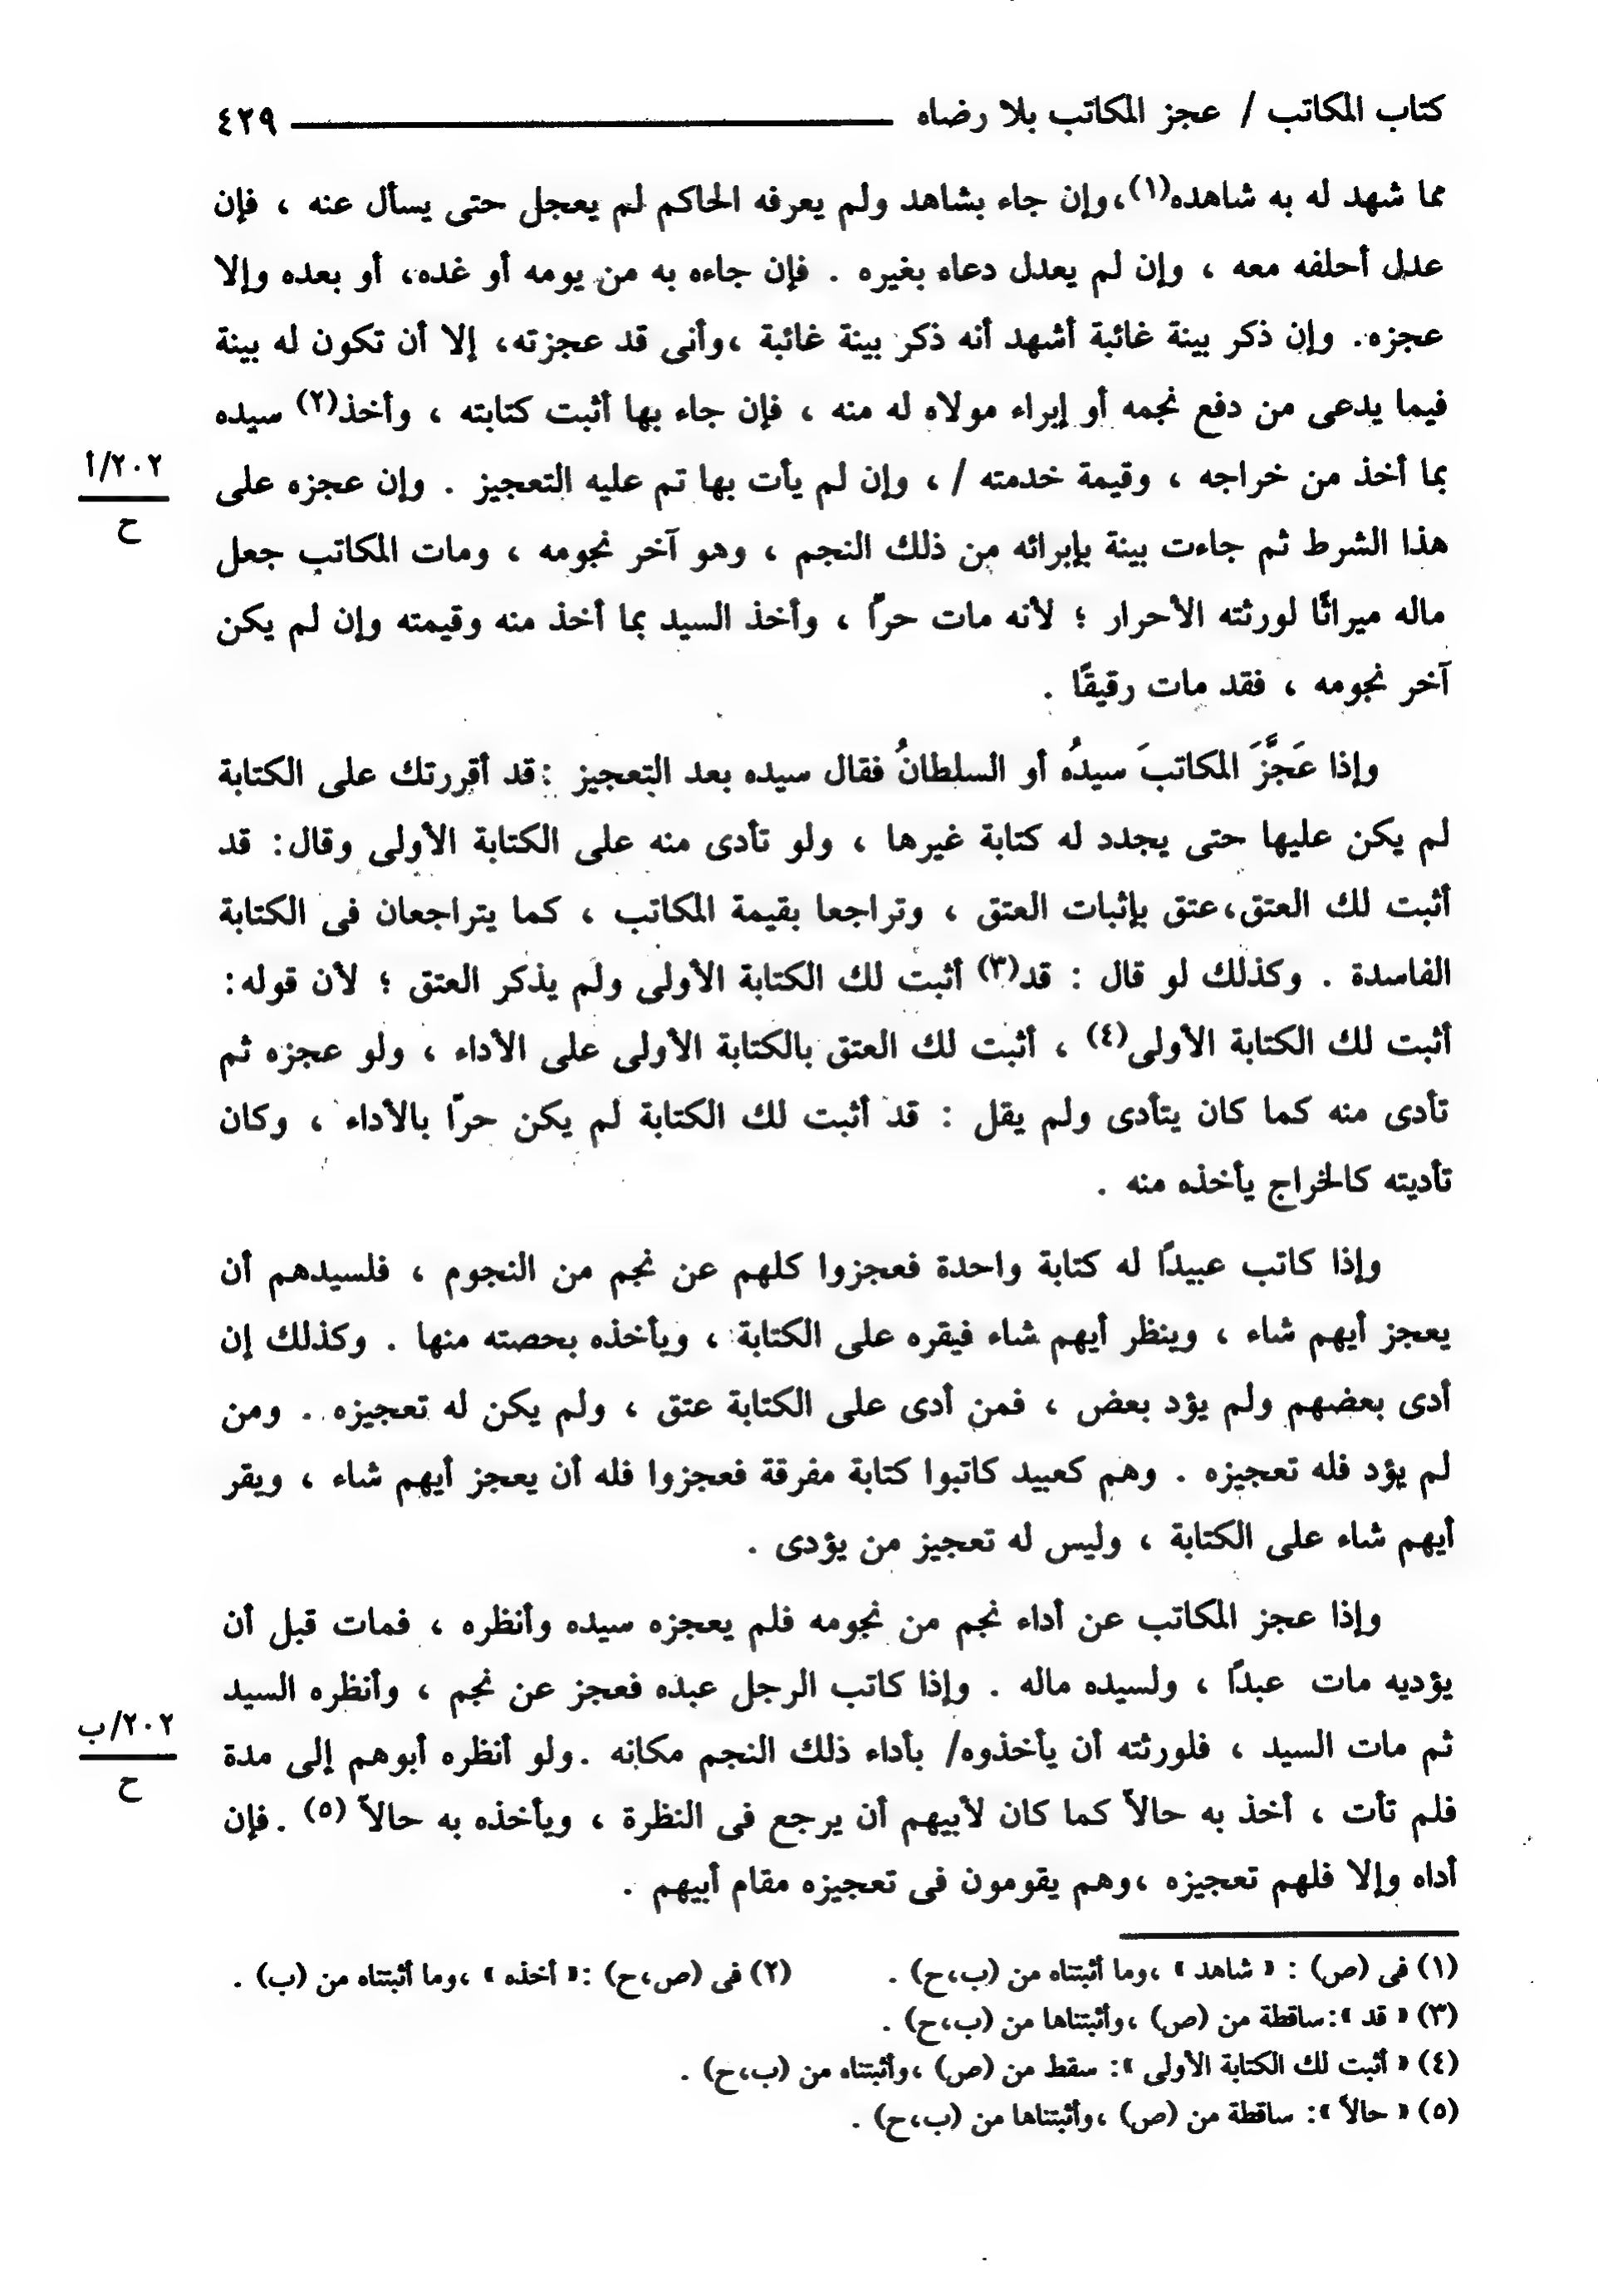 كتاب المكاتب / عجز المكاتب بلا رضاه ٤٢٩
مما شهد له به شاهده(١)،وإن جاء بشاهد ولم يعرفه الحاكم لم يعجل حتى يسأل عنه ، فإن
عدل أحلفه معه ، وإن لم يعدل دعاه بغيره . فإن جاءه به من يومه أو غده، أو بعده وإلا
عجزه. وإن ذكر بينة غائبة أشهد أنه ذكر بينة غائبة ،وأنى قد عجزته، إلا أن تكون له بينة
فيما يدعى من دفع نجمه أو إبراء مولاه له منه ، فإن جاء بها أثبت كتابته ، وأخذ(٢) سيده
بما أخذ من خراجه ، وقيمة خدمته / ، وإن لم يأت بها تم عليه التعجيز . وإن عجزه على
٢٠٢/أ
ح
هذا الشرط ثم جاءت بينة بإبرائه من ذلك النجم ، وهو آخر نجومه ، ومات المكاتب جعل
ماله ميراثًا لورثته الأحرار ؛ لأنه مات حرًا ، وأخذ السيد بما أخذ منه وقيمته وإن لم يكن
آخر نجومه ، فقد مات رقيقًا .
وإذا عَجَّزَ المكاتبَ سيدُه أو السلطانُ فقال سيده بعد التعجيز :قد أقررتك على الكتابة
لم يكن عليها حتى يجدد له كتابة غيرها ، ولو تأدى منه على الكتابة الأولى وقال: قد
أثبت لك العتق،عتق بإثبات العتق ، وتراجعا بقيمة المكاتب ، كما يتراجعان فى الكتابة
الفاسدة . وكذلك لو قال : قد(٣) أثبت لك الكتابة الأولى ولم يذكر العتق ؛ لأن قوله:
أثبت لك الكتابة الأولى(٤) ، أثبت لك العتق بالكتابة الأولى على الأداء ، ولو عجزه ثم
تأدى منه كما كان يتأدى ولم يقل : قد أثبت لك الكتابة لم يكن حرًا بالأداء ، وكان
تأديته كالخراج يأخذه منه .
وإذا كاتب عبيدًا له كتابة واحدة فعجزوا كلهم عن نجم من النجوم ، فلسيدهم أن
يعجز أيهم شاء ، وينظر أيهم شاء فيقره على الكتابة ، ويأخذه بحصته منها . وكذلك إن
أدى بعضهم ولم يؤد بعض ، فمن أدى على الكتابة عتق ، ولم يكن له تعجيزه . ومن
لم يؤد فله تعجيزه . وهم كعبيد كاتبوا كتابة مفرقة فعجزوا فله أن يعجز أيهم شاء ، ويقر
أيهم شاء على الكتابة ، وليس له تعجيز من يؤدى .
وإذا عجز المكاتب عن أداء نجم من نجومه فلم يعجزه سيده وأنظره ، فمات قبل أن
يؤديه مات عبدًا ، ولسيده ماله . وإذا كاتب الرجل عبده فعجز عن نجم ، وأنظره السيد
ثم مات السيد ، فلورثته أن يأخذوه/ بأداء ذلك النجم مكانه .ولو أنظره أبوهم إلى مدة
٢٠٢/ب
ح
فلم تأت ، أخذ به حالاً كما كان لأبيهم أن يرجع فى النظرة ، ويأخذه به حالاً (٥) .فإن
أداه وإلا فلهم تعجيزه ،وهم يقومون فى تعجيزه مقام أبيهم .
(١) فى (ص) : « شاهد » ،وما أثبتناه من (ب،ح) . (٢) فى (ص،ح) :« أخذه » ،وما أثبتناه من (ب) .
(٣) « قد »:ساقطة من (ص) ،وأثبتناها من (ب،ح) .
(٤) « أثبت لك الكتابة الأولى »: سقط من (ص) ،وأثبتناه من (ب،ح) .
(٥) « حالاً »: ساقطة من (ص) ،وأثبتناها من (ب،ح) .